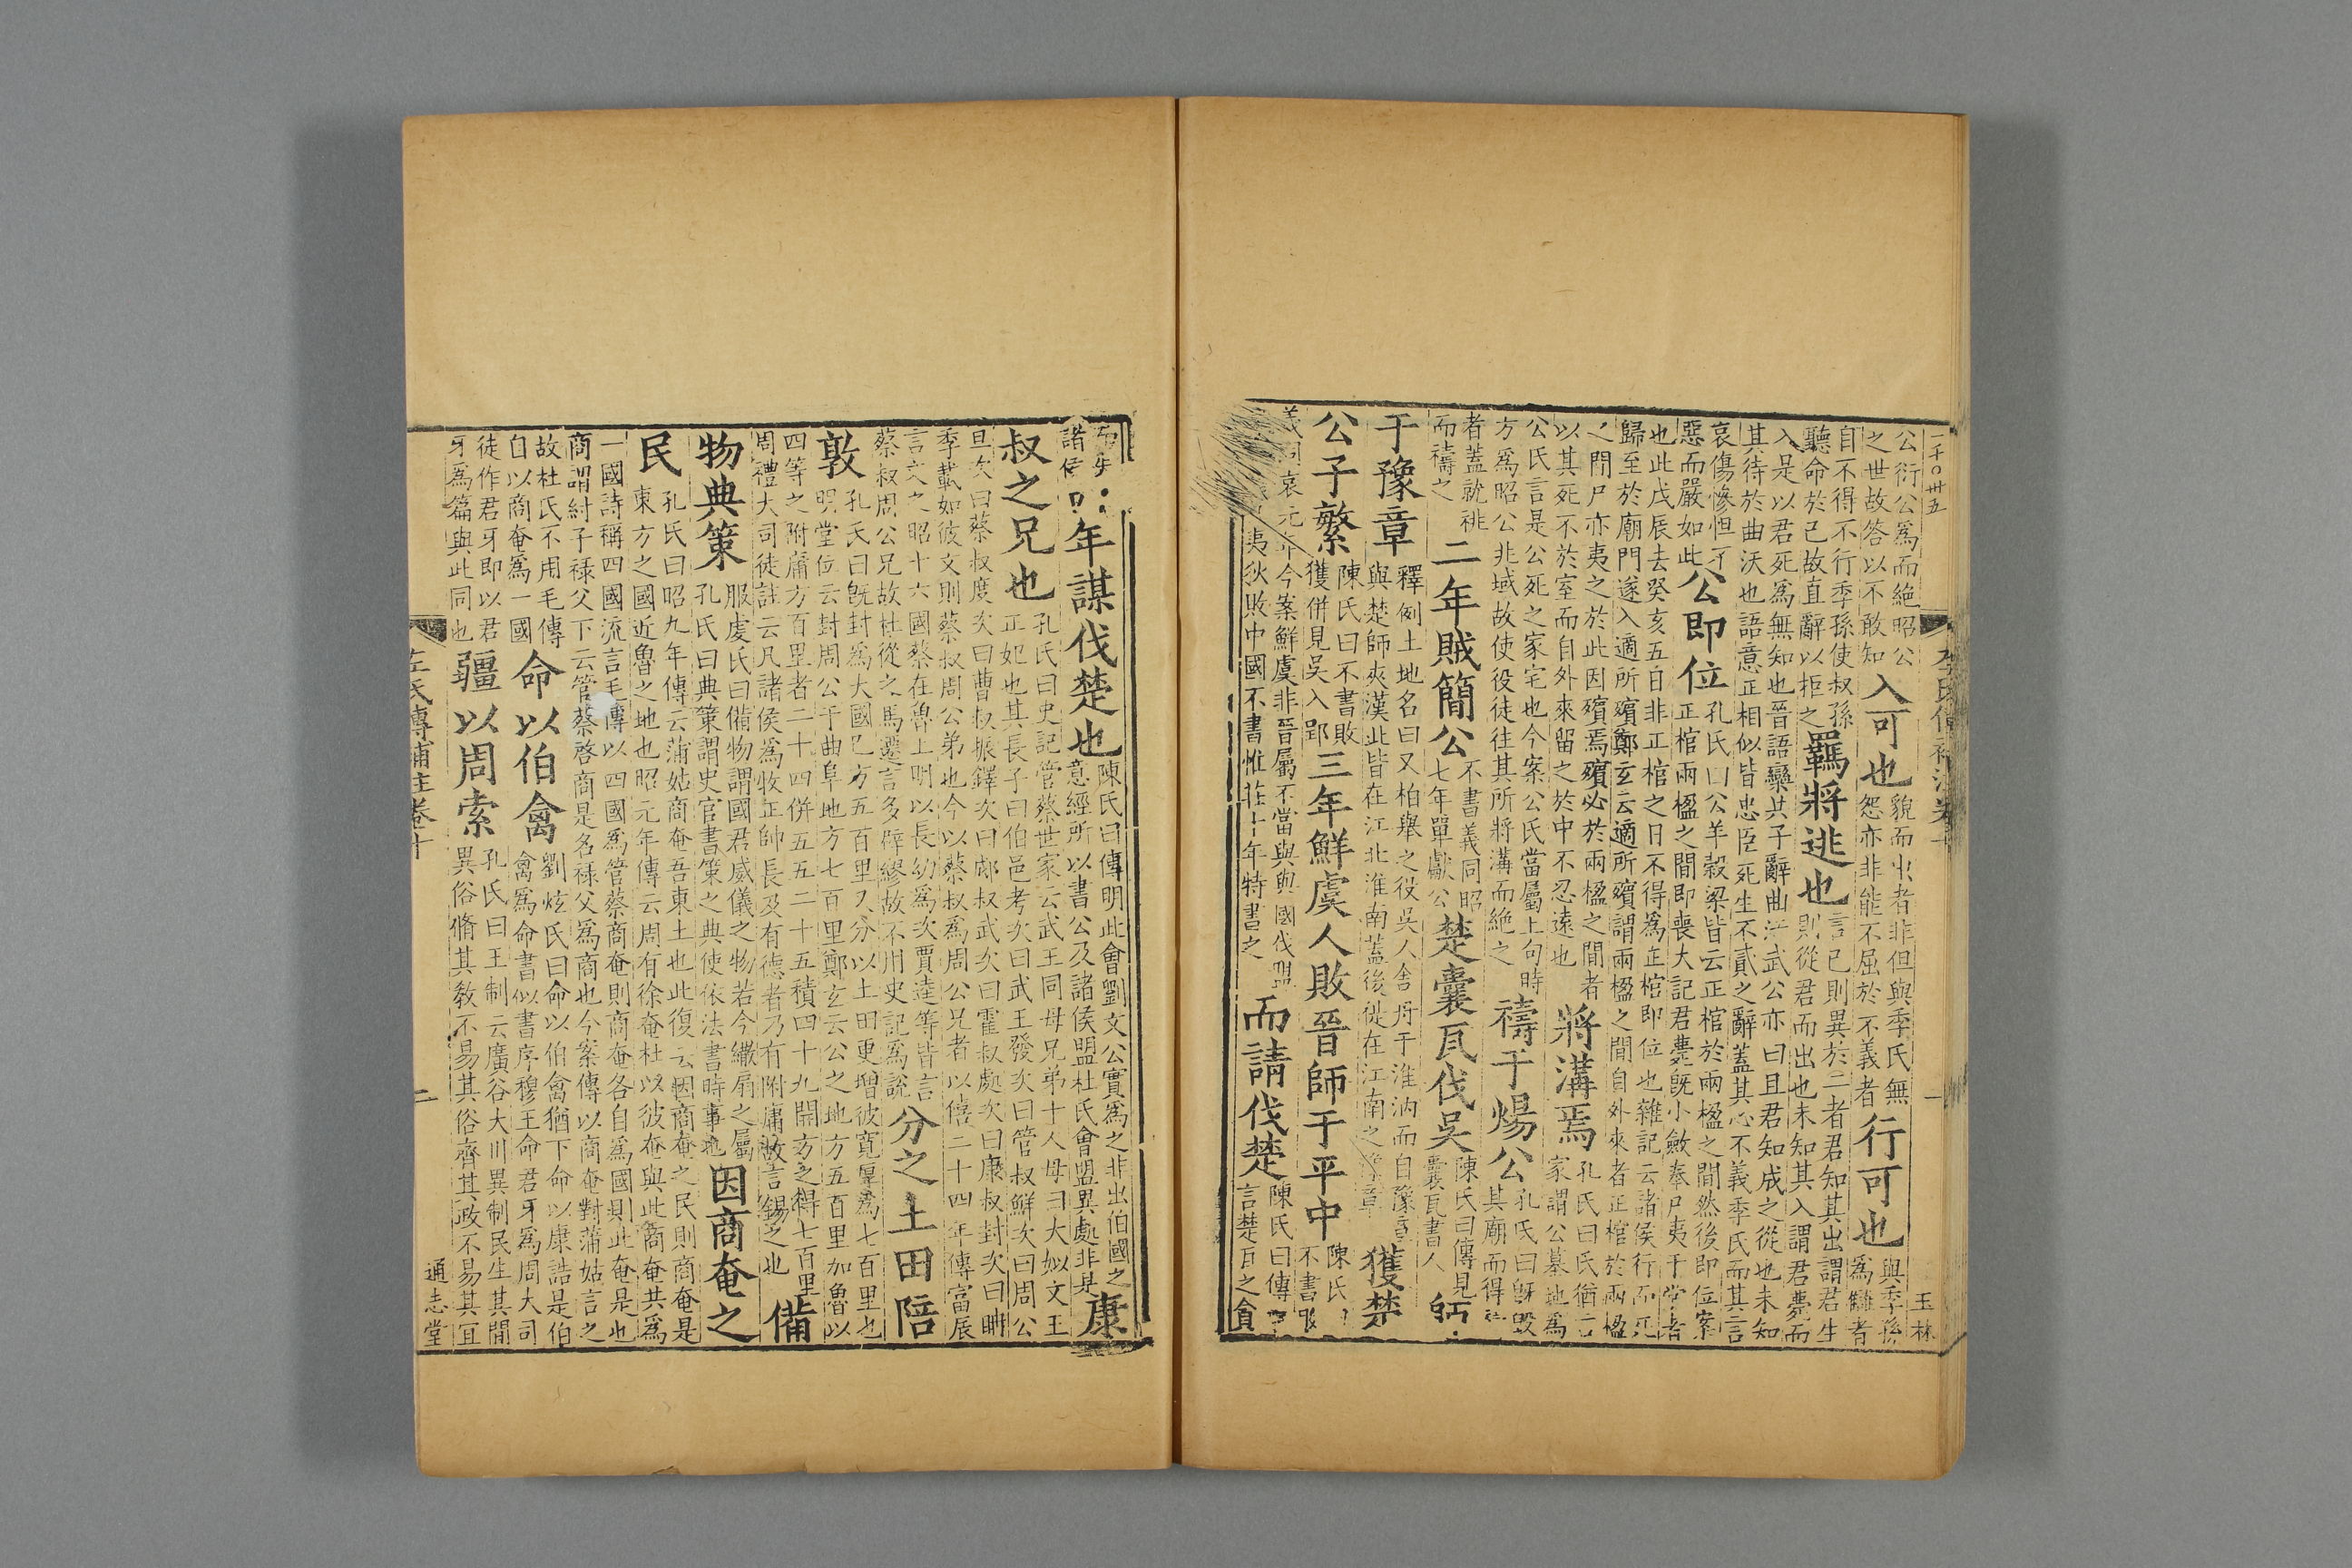 一千〇卅五
公衍公爲而絕昭公
之世故答以不敢知
入可也
貌而出者非但與季氏無
怨亦非能不屈於不義者
行可也
與季孫
爲讎者
自不得不行季孫使叔孫
聽命於已故直辭以拒之
羈將逃也
言已則異於二者君知其出謂君生
則從君而出也未知其入謂君薨而
入是以君死爲無知也晉語欒共子辭曲沃武公亦曰且君知成之從也未知
其待於曲沃也語意正相似皆忠臣死生不貳之辭蓋其心不義季氏而其言
哀傷慘怛
惡而嚴如此
公即位
孔氏曰公羊穀梁皆云正棺於兩楹之間然後即位案
正棺兩楹之間即喪大記君薨既小斂奉尸夷于堂者
也此戊辰去癸亥五日非正棺之日不得為正棺即位也雜記云諸侯行而死
歸至於廟門遂入適所殯鄭玄云適所殯謂兩楹之間自外來者正棺於兩楹
之間尸亦夷之於此因殯焉殯必於兩楹之間者
以其死不於室而自外來留之於中不忍遠也
將溝焉
孔氏曰氏猶言
家謂公墓地爲
公氏言是公死之家宅也今案公氏當屬上句時
方爲昭公兆域故使役徒往其所將溝而絕之
禱于煬公
孔氏曰旣毀
其廟而得
者蓋就祧
而禱之
二年賊簡公
不書義同昭
七年單獻公
楚囊瓦伐吳
陳氏曰傳見
囊瓦書人
師
于豫章
釋例土地名曰又柏舉之役吳人舍舟于淮汭而自豫章
與楚師夾漢此皆在江北淮南蓋後徙在江南之豫章
獲楚
公子繁
陳氏曰不書敗
獲併見吳入郢
三年鮮虞人敗晉師于平中
陳氏
不書
元年今案鮮虞非晉屬不當與與國伐盟
夷狄敗中國不書惟莊十年特書之
而請伐楚
陳氏曰傳
言楚瓦之貪
李氏傳補注卷十
一
玉林
諸侯
年謀伐楚也
陳氏曰傳明此會劉文公實爲之非出伯國之
意經所以書公及諸侯盟杜氏會盟異處非是
康
叔之兄也
孔氏曰史記管蔡世家云武王同母兄弟十人母曰大姒文王
正妃也其長子曰伯邑考次曰武王發次曰管叔鮮次曰周公
旦次曰蔡叔度次曰曹叔振鐸次曰郕叔武次曰霍叔處次曰康叔封次曰耼
季載如彼文則蔡叔周公弟也今以蔡叔爲周公兄者以僖二十四年傳富辰
言文之昭十六國蔡在魯上明以長幼爲次賈逵等皆言
蔡叔周公兄故杜從之馬遷言多舛繆故不用史記爲說
分之土田陪
敦
孔氏曰旣封爲大國已方五百里又分以土田更增彼寬厚爲七百里也
明堂位云封周公于曲阜地方七百里鄭玄云公之地方五百里加魯以
四等之附庸方百里者二十四併五五二十五積四十九開方之得七百里
周禮大司徒註云凡諸侯爲牧正帥長及有德者乃有附庸故言錫之也
備
物典策
服虔氏曰備物謂國君威儀之物若今繖扇之屬
孔氏曰典策謂史官書策之典使依法書時事也
因商奄之
民
孔氏曰昭九年傳云蒲姑商奄吾東土也此復云因商奄之民則商奄是
東方之國近魯之地也昭元年傳云周有徐奄杜以彼奄與此商奄共爲
一國詩稱四國流言毛傳以四國爲管蔡商奄則商奄各自爲國則此奄是也
商謂紂子祿父下云管蔡啓商是名祿父爲商也今案傳以商奄對蒲姑言之
故杜氏不用毛傳
自以商奄爲一國
命以伯禽
劉炫氏曰命以伯禽猶下命以康誥是伯
禽爲命書似書序穆王命君牙爲周大司
徒作君牙即以君
牙爲篇與此同也
疆以周索
孔氏曰王制云廣谷大川異制民生其間
異俗脩其教不易其俗齊其政不易其宜
左氏傳補註卷十
二
通志堂